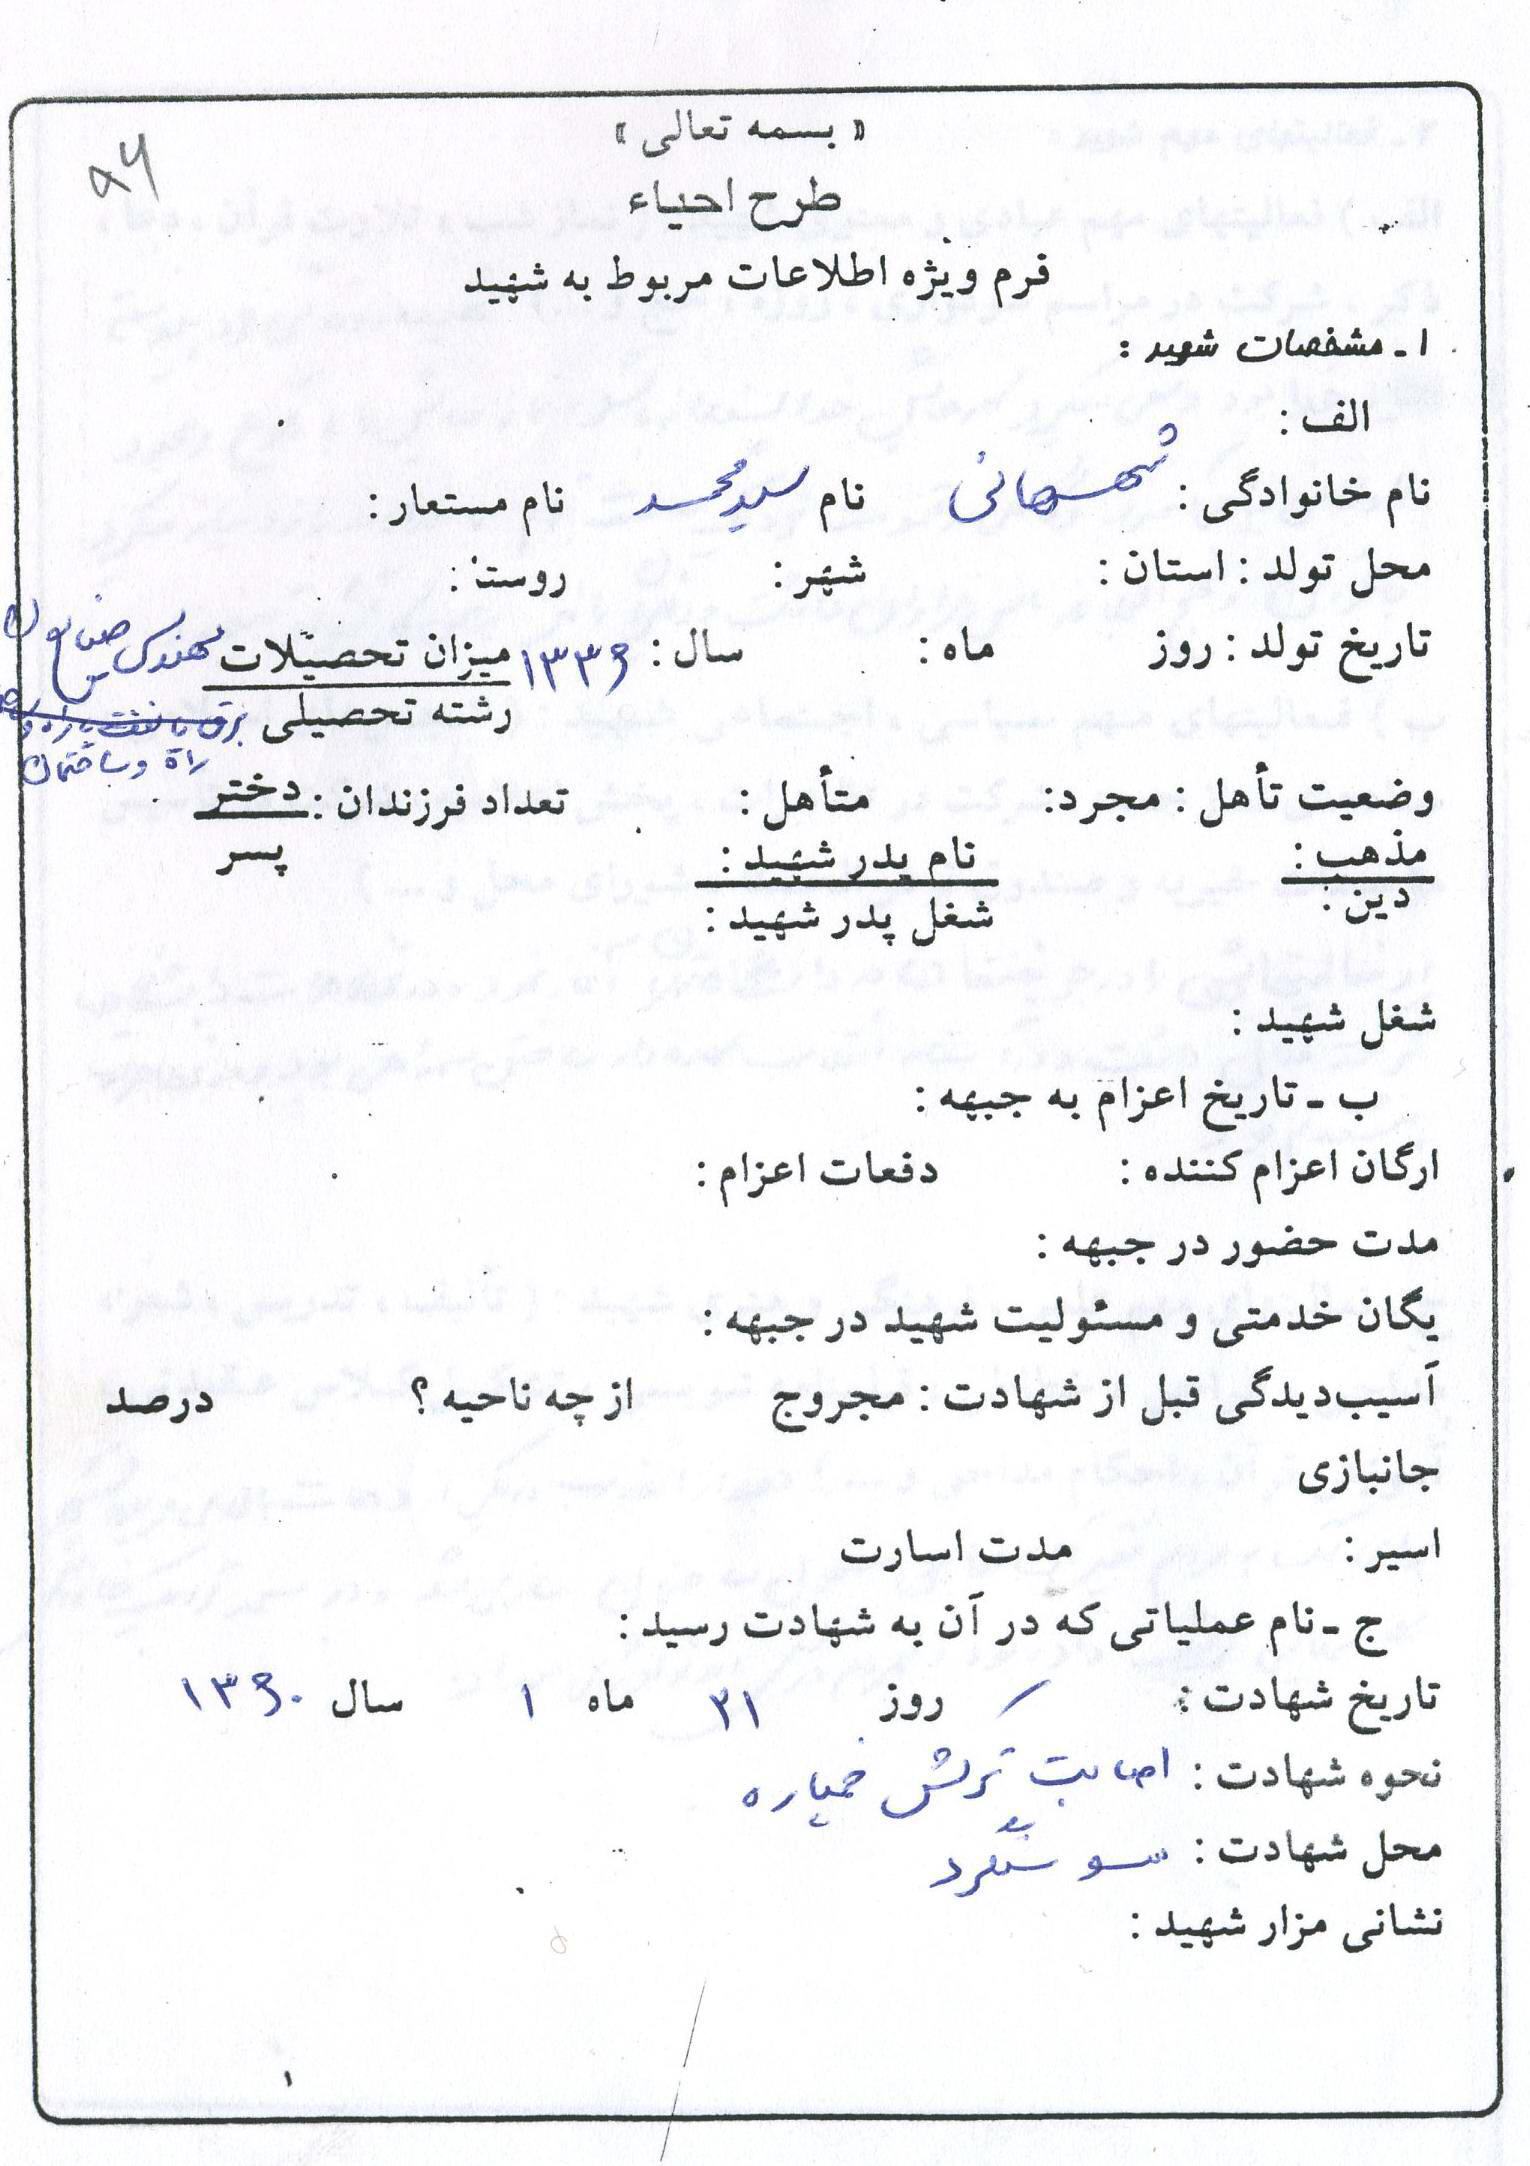 ۸۶
« بسمه تعالی »
طرح احیاء
فرم ویژه اطلاعات مربوط به شهید
۱ ـ مشخصات شهید :
الف :
نام خانوادگی : شهسهانی نام سیدمحمد نام مستعار :
محل تولد : استان : شهر : روستا :
تاریخ تولد : روز ماه : سال : ۱۳۳۶ میزان تحصیلات مهندس صنایع
رشته تحصیلی
راه و ساختمان
وضعیت تأهل : مجرد : متأهل : تعداد فرزندان : دختر
پسر
مذهب : نام پدر شهید :
دین : شغل پدر شهید :
شغل شهید :
ب ـ تاریخ اعزام به جبهه :
ارگان اعزام کننده : دفعات اعزام :
مدت حضور در جبهه :
یگان خدمتی و مسئولیت شهید در جبهه :
آسیب‌دیدگی قبل از شهادت : مجروج از چه ناحیه ؟ درصد
جانبازی
اسیر : مدت اسارت
ج ـ نام عملیاتی که در آن به شهادت رسید :
تاریخ شهادت : روز ۲۱ ماه ۱ سال ۱۳۶۰
نحوه شهادت : اصابت ترکش خمپاره
محل شهادت : سوسنگرد
نشانی مزار شهید :
۱